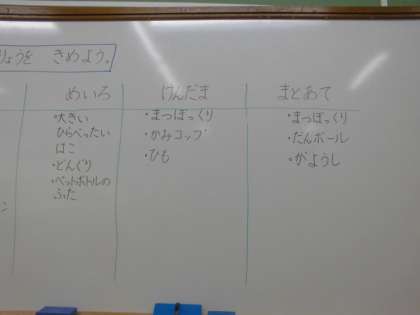 りょうを きめよう。
めいろ
・大きい
ひらべったい
はこ
・どんぐり
・ペットボトルの
ふた
けんだま
・まつぼっくり
・かみコップ
・ひも
まとあて
・まつぼっくり
・だんボール
・がようし
ン